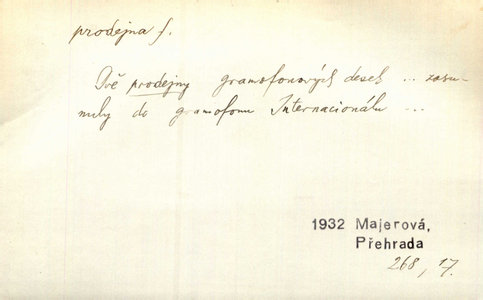 prodejna f.
Dvě prodejny gramofonových desek ... zasu-
nuly do gramofonu Internacionálu ...
1932 Majerová,
Přehrada
268, 17.